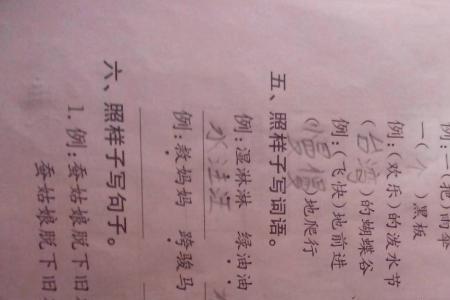 例:一(把)雨伞
一( )黑板
例:(欢乐)的泼水节
(台湾)的蝴蝶谷
例:(飞快)地前进
(慢慢)地爬行
五、照样子写词语。
例:湿淋淋 绿油油
水汪汪
例:教妈妈 跨骏马
六、照样子写句子。
1.例:蚕姑娘脱下旧
蚕姑娘脱下旧